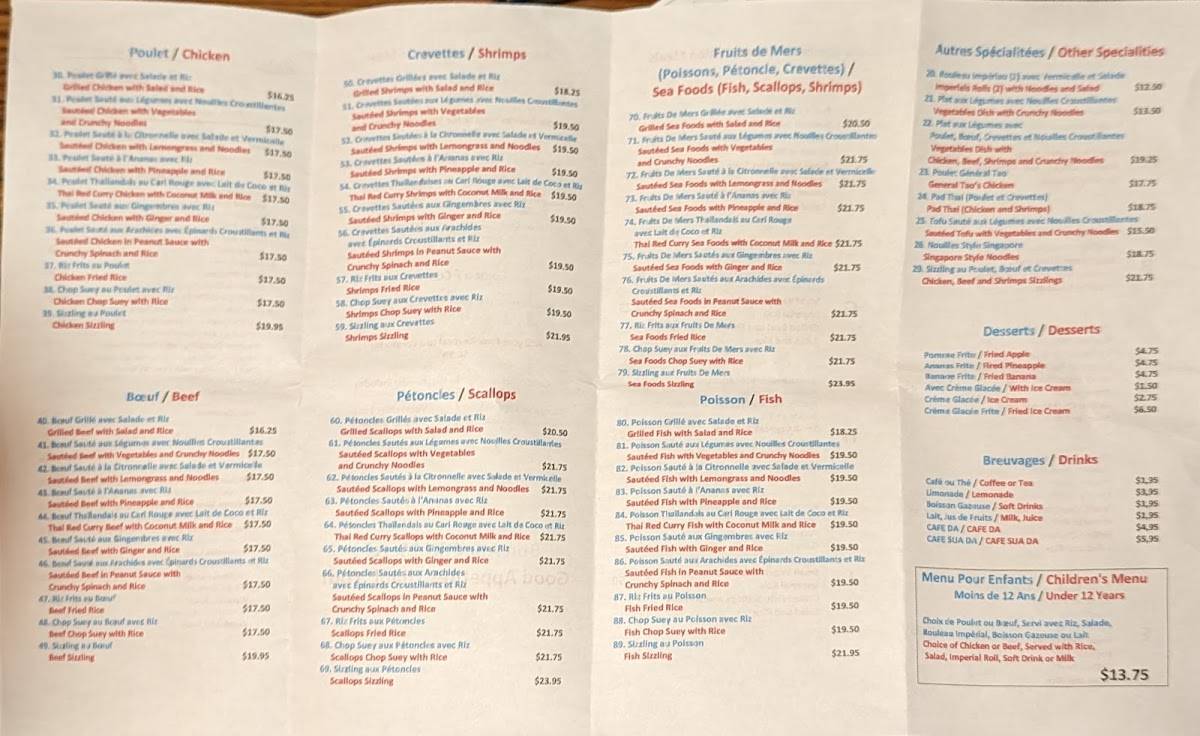 Poulet / Chicken
30. Poulet Grillé avec Salade et Riz
Grilled Chicken with Salad and Rice $16.25
31. Poulet Sauté aux Légumes avec Nouilles Croustillantes
Sautéed Chicken with Vegetables
and Crunchy Noodles $17.50
32. Poulet Sauté à la Citronnelle avec Salade et Vermicelle
Sautéed Chicken with Lemongrass and Noodles $17.50
33. Poulet Sauté à l'Ananas avec Riz
Sautéed Chicken with Pineapple and Rice $17.50
34. Poulet Thaïlandais au Cari Rouge avec Lait de Coco et Riz
Thai Red Curry Chicken with Coconut Milk and Rice $17.50
35. Poulet Sauté aux Gingembres avec Riz
Sautéed Chicken with Ginger and Rice $17.50
36. Poulet Sauté aux Arachides avec Épinards Croustillants et Riz
Sautéed Chicken in Peanut Sauce with
Crunchy Spinach and Rice $17.50
37. Riz Frits au Poulet
Chicken Fried Rice $17.50
38. Chop Suey au Poulet avec Riz
Chicken Chop Suey with Rice $17.50
39. Sizzling au Poulet
Chicken Sizzling $19.95
Bœuf / Beef
40. Bœuf Grillé avec Salade et Riz
Grilled Beef with Salad and Rice $16.25
41. Bœuf Sauté aux Légumes avec Nouilles Croustillantes
Sautéed Beef with Vegetables and Crunchy Noodles $17.50
42. Bœuf Sauté à la Citronnelle avec Salade et Vermicelle
Sautéed Beef with Lemongrass and Noodles $17.50
43. Bœuf Sauté à l'Ananas avec Riz
Sautéed Beef with Pineapple and Rice $17.50
44. Bœuf Thaïlandais au Cari Rouge avec Lait de Coco et Riz
Thai Red Curry Beef with Coconut Milk and Rice $17.50
45. Bœuf Sauté aux Gingembres avec Riz
Sautéed Beef with Ginger and Rice $17.50
46. Bœuf Sauté aux Arachides avec Épinards Croustillants et Riz
Sautéed Beef in Peanut Sauce with
Crunchy Spinach and Rice $17.50
47. Riz Frits au Bœuf
Beef Fried Rice $17.50
48. Chop Suey au Bœuf avec Riz
Beef Chop Suey with Rice $17.50
49. Sizzling au Bœuf
Beef Sizzling $19.95
Crevettes / Shrimps
50. Crevettes Grillées avec Salade et Riz
Grilled Shrimps with Salad and Rice $18.25
51. Crevettes Sautées aux Légumes avec Nouilles Croustillantes
Sautéed Shrimps with Vegetables
and Crunchy Noodles $19.50
52. Crevettes Sautées à la Citronnelle avec Salade et Vermicelle
Sautéed Shrimps with Lemongrass and Noodles $19.50
53. Crevettes Sautées à l'Ananas avec Riz
Sautéed Shrimps with Pineapple and Rice $19.50
54. Crevettes Thaïlandaises au Cari Rouge avec Lait de Coco et Riz
Thai Red Curry Shrimps with Coconut Milk and Rice $19.50
55. Crevettes Sautées aux Gingembres avec Riz
Sautéed Shrimps with Ginger and Rice $19.50
56. Crevettes Sautées aux Arachides
avec Épinards Croustillants et Riz
Sautéed Shrimps in Peanut Sauce with
Crunchy Spinach and Rice $19.50
57. Riz Frits aux Crevettes
Shrimps Fried Rice $19.50
58. Chop Suey aux Crevettes avec Riz
Shrimps Chop Suey with Rice $19.50
59. Sizzling aux Crevettes
Shrimps Sizzling $21.95
Pétoncles / Scallops
60. Pétoncles Grillés avec Salade et Riz
Grilled Scallops with Salad and Rice $20.50
61. Pétoncles Sautés aux Légumes avec Nouilles Croustillantes
Sautéed Scallops with Vegetables
and Crunchy Noodles $21.75
62. Pétoncles Sautés à la Citronnelle avec Salade et Vermicelle
Sautéed Scallops with Lemongrass and Noodles $21.75
63. Pétoncles Sautés à l'Ananas avec Riz
Sautéed Scallops with Pineapple and Rice $21.75
64. Pétoncles Thaïlandais au Cari Rouge avec Lait de Coco et Riz
Thai Red Curry Scallops with Coconut Milk and Rice $21.75
65. Pétoncles Sautés aux Gingembres avec Riz
Sautéed Scallops with Ginger and Rice $21.75
66. Pétoncles Sautés aux Arachides
avec Épinards Croustillants et Riz
Sautéed Scallops in Peanut Sauce with
Crunchy Spinach and Rice $21.75
67. Riz Frits aux Pétoncles
Scallops Fried Rice $21.75
68. Chop Suey aux Pétoncles avec Riz
Scallops Chop Suey with Rice $21.75
69. Sizzling aux Pétoncles
Scallops Sizzling $23.95
Fruits de Mers
(Poissons, Pétoncle, Crevettes) /
Sea Foods (Fish, Scallops, Shrimps)
70. Fruits De Mers Grillée avec Salade et Riz
Grilled Sea Foods with Salad and Rice $20.50
71. Fruits De Mers Sauté aux Légumes avec Nouilles Croustillantes
Sautéed Sea Foods with Vegetables
and Crunchy Noodles $21.75
72. Fruits De Mers Sauté à la Citronnelle avec Salade et Vermicelle
Sautéed Sea Foods with Lemongrass and Noodles $21.75
73. Fruits De Mers Sauté à l'Ananas avec Riz
Sautéed Sea Foods with Pineapple and Rice $21.75
74. Fruits De Mers Thaïlandais au Cari Rouge
avec Lait de Coco et Riz
Thai Red Curry Sea Foods with Coconut Milk and Rice $21.75
75. Fruits De Mers Sautés aux Gingembres avec Riz
Sautéed Sea Foods with Ginger and Rice $21.75
76. Fruits De Mers Sautés aux Arachides avec Épinards
Croustillants et Riz
Sautéed Sea Foods in Peanut Sauce with
Crunchy Spinach and Rice $21.75
77. Riz Frits aux Fruits De Mers
Sea Foods Fried Rice $21.75
78. Chop Suey aux Fruits De Mers avec Riz
Sea Foods Chop Suey with Rice $21.75
79. Sizzling aux Fruits De Mers
Sea Foods Sizzling $23.95
Poisson / Fish
80. Poisson Grillé avec Salade et Riz
Grilled Fish with Salad and Rice $18.25
81. Poisson Sauté aux Légumes avec Nouilles Croustillantes
Sautéed Fish with Vegetables and Crunchy Noodles $19.50
82. Poisson Sauté à la Citronnelle avec Salade et Vermicelle
Sautéed Fish with Lemongrass and Noodles $19.50
83. Poisson Sauté à l'Ananas avec Riz
Sautéed Fish with Pineapple and Rice $19.50
84. Poisson Thaïlandais au Cari Rouge avec Lait de Coco et Riz
Thai Red Curry Fish with Coconut Milk and Rice $19.50
85. Poisson Sauté aux Gingembres avec Riz
Sautéed Fish with Ginger and Rice $19.50
86. Poisson Sauté aux Arachides avec Épinards Croustillants et Riz
Sautéed Fish in Peanut Sauce with
Crunchy Spinach and Rice $19.50
87. Riz Frits au Poisson
Fish Fried Rice $19.50
88. Chop Suey au Poisson avec Riz
Fish Chop Suey with Rice $19.50
89. Sizzling au Poisson
Fish Sizzling $21.95
Autres Spécialitées / Other Specialities
20. Rouleau Impérial (2) avec Vermicelle et Salade
Imperials Rolls (2) with Noodles and Salad $12.50
21. Plat aux Légumes avec Nouilles Croustillantes
Vegetables Dish with Crunchy Noodles $13.50
22. Plat aux Légumes avec
Poulet, Bœuf, Crevettes et Nouilles Croustillantes
Vegetables Dish with
Chicken, Beef, Shrimps and Crunchy Noodles $19.25
23. Poulet Général Tao
General Tao's Chicken $17.75
24. Pad Thai (Poulet et Crevettes)
Pad Thai (Chicken and Shrimps) $18.75
25. Tofu Sauté aux Légumes avec Nouilles Croustillantes
Sautéed Tofu with Vegetables and Crunchy Noodles $15.50
26. Nouilles Style Singapore
Singapore Style Noodles $18.75
29. Sizzling au Poulet, Bœuf et Crevettes
Chicken, Beef and Shrimps Sizzlings $21.75
Desserts / Desserts
Pomme Frite / Fried Apple $4.75
Ananas Frite / Fired Pineapple $4.75
Banane Frite / Fried Banana $4.75
Avec Crème Glacée / With Ice Cream $1.50
Crème Glacée / Ice Cream $2.75
Crème Glacée Frite / Fried Ice Cream $6.50
Breuvages / Drinks
Café ou Thé / Coffee or Tea $1,95
Limonade / Lemonade $3,95
Boisson Gazeuse / Soft Drinks $1,95
Lait, Jus de Fruits / Milk, Juice $2,95
CAFE DA / CAFE DA $4,95
CAFE SUA DA / CAFE SUA DA $5,95
Menu Pour Enfants / Children's Menu
Moins de 12 Ans / Under 12 Years
Choix de Poulet ou Bœuf, Servi avec Riz, Salade,
Rouleau Impérial, Boisson Gazeuse ou Lait
Choice of Chicken or Beef, Served with Rice,
Salad, Imperial Roll, Soft Drink or Milk
$13.75